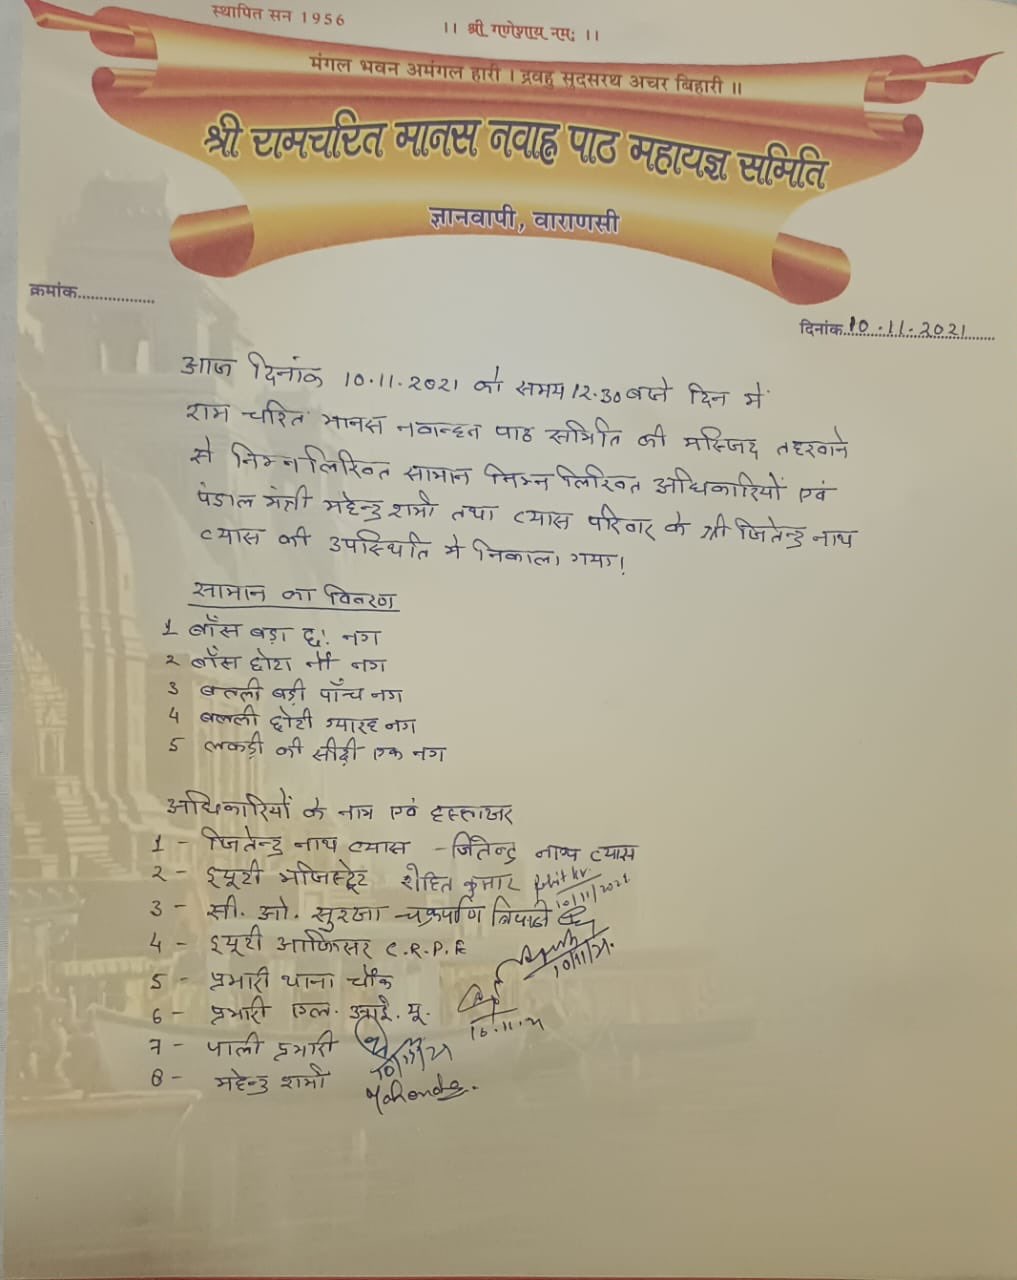 स्थापित सन 1956
।। श्री गणेशाय नमः ।।
मंगल भवन अमंगल हारी । द्रवहु सुदसरथ अचर बिहारी ॥
श्री रामचरित मानस नवाह्न पाठ महायज्ञ समिति
ज्ञानवापी, वाराणसी
क्रमांक..................
दिनांक 10.11.2021
आज दिनांक 10.11.2021 को समय 12.30 बजे दिन में
राम चरित मानस नवान्हन पाठ समिति की मस्जिद तहखाने
से निम्नलिखित सामान निम्नलिखित अधिकारियों एवं
पंडाल मंत्री महेन्द्र शर्मा तथा व्यास परिवार के श्री जितेन्द्र नाथ
व्यास की उपस्थिति में निकाला गया।
सामान का विवरण
1 बाँस बड़ा छः नग
2 बाँस छोटा नौ नग
3 बल्ली बड़ी पाँच नग
4 बल्ली छोटी ग्यारह नग
5 लकड़ी की सीढ़ी एक नग
अधिकारियों के नाम एवं हस्ताक्षर
1 - जितेन्द्र नाथ व्यास - जितेन्द्र नाथ व्यास
2 - ड्यूटी मजिस्ट्रेट रोहित कुमार 10/11/2021
3 - सी. ओ. सुरक्षा चक्रपाणि त्रिपाठी
4 - ड्यूटी आफिसर C.R.P.F 10/11/21
5 - प्रभारी थाना चौक
6 - प्रभारी एल. आई. यू. 10.11.21
7 - पाली प्रभारी 10/11/21
8 - महेन्द्र शर्मा Mahendra